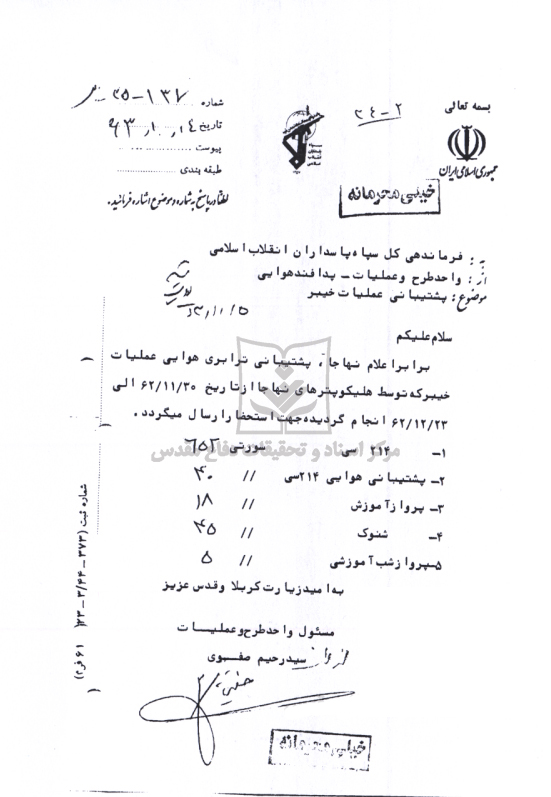 بسمه تعالی
جمهوری اسلامی ایران
۲-۲۴
شماره ۱۳۷-۳۵
تاریخ ۶۳/۱/۱۴
پیوست
طبقه بندی
لطفا در پاسخ به شماره و موضوع اشاره فرمائید.
خیلی محرمانه
به : فرماندهی کل سپاه پاسداران انقلاب اسلامی
از : واحد طرح و عملیات - پدافند هوایی
موضوع : پشتیبانی عملیات خیبر
سلام علیکم
برابر اعلام نهاجا، پشتیبانی ترابری هوایی عملیات
خیبر که توسط هلیکوپترهای نهاجا از تاریخ ۶۲/۱۱/۳۰ الی
۶۲/۱۲/۲۳ انجام گردیده جهت استحضار ارسال میگردد.
مرکز اسناد و تحقیقات دفاع مقدس
۱- ۲۱۴ سی سورتی ۶۵۲
۲- پشتیبانی هوایی ۲۱۴سی // ۴۰
۳- پرواز آموزش // ۱۸
۴- شنوک // ۴۵
۵- پرواز شب آموزشی // ۵
به امید زیارت کربلا و قدس عزیز
مسئول واحد طرح و عملیات
سید رحیم صفوی
خیلی محرمانه
شماره ثبت (۳۷۳ - ۳/۴۴ - ۲۳) (۶۱ فر۲)